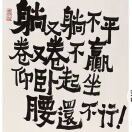 躺又躺不平
卷又卷不贏
仰卧起坐
腰還不行!